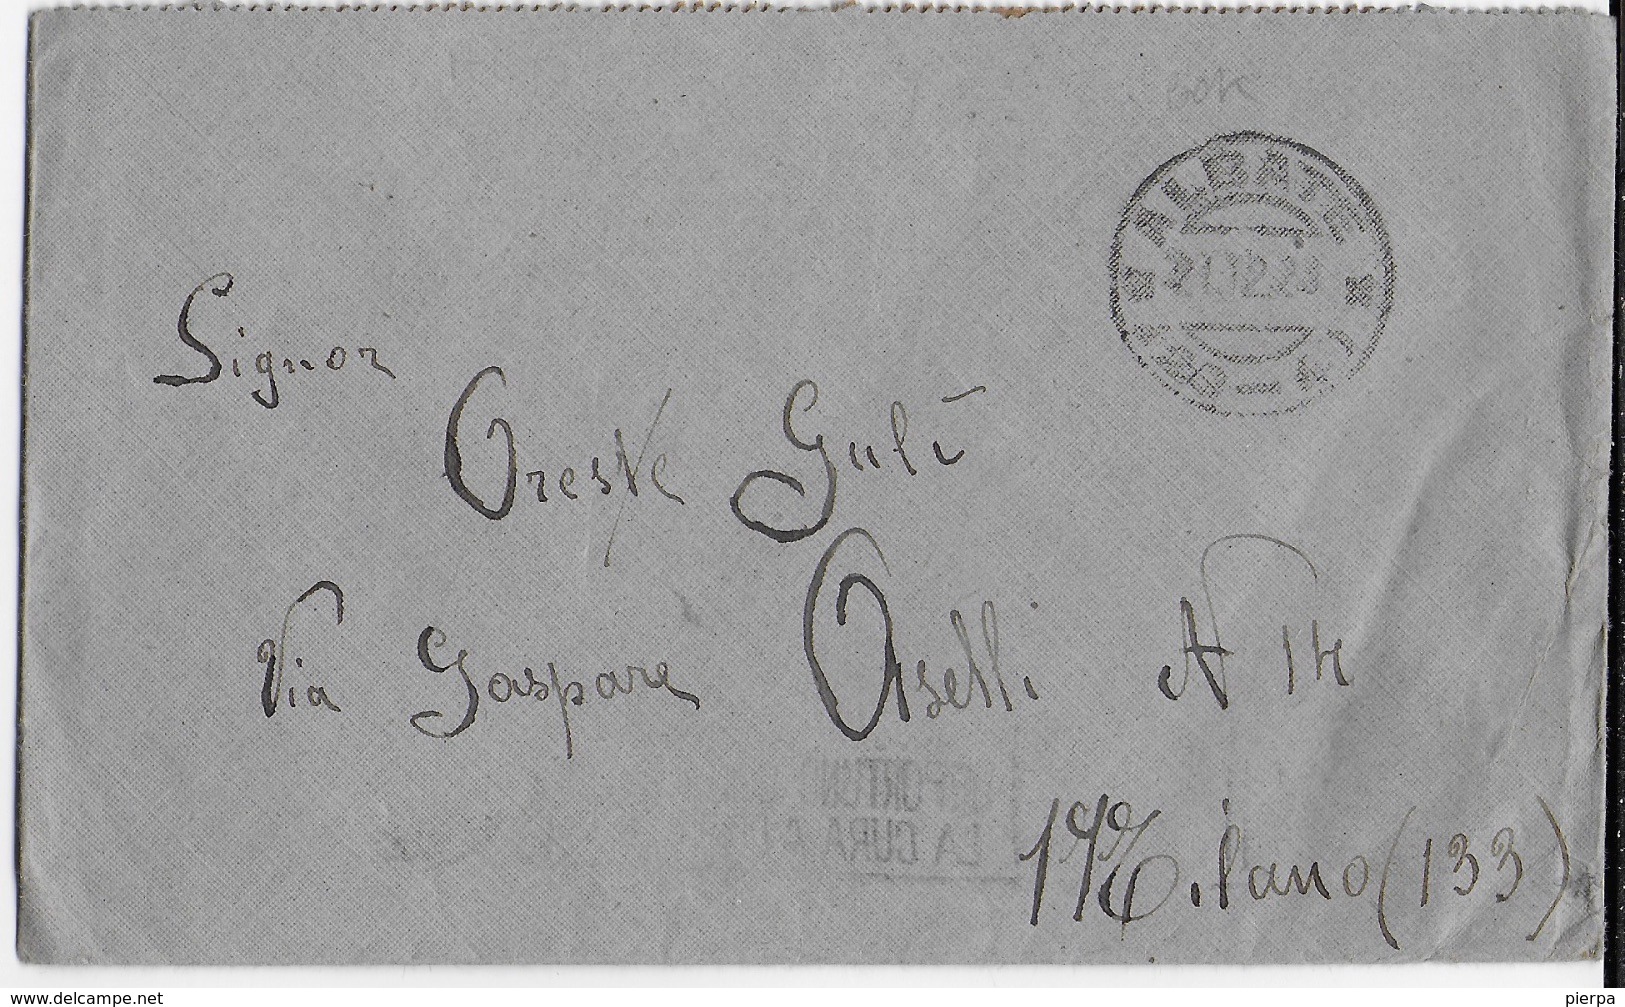 ALBATE
21.12.28
Signor
Oreste Gulì
Via Gaspare Aselli N 14
LA CURA
Milano (133)
www.delcampe.net
pierpa